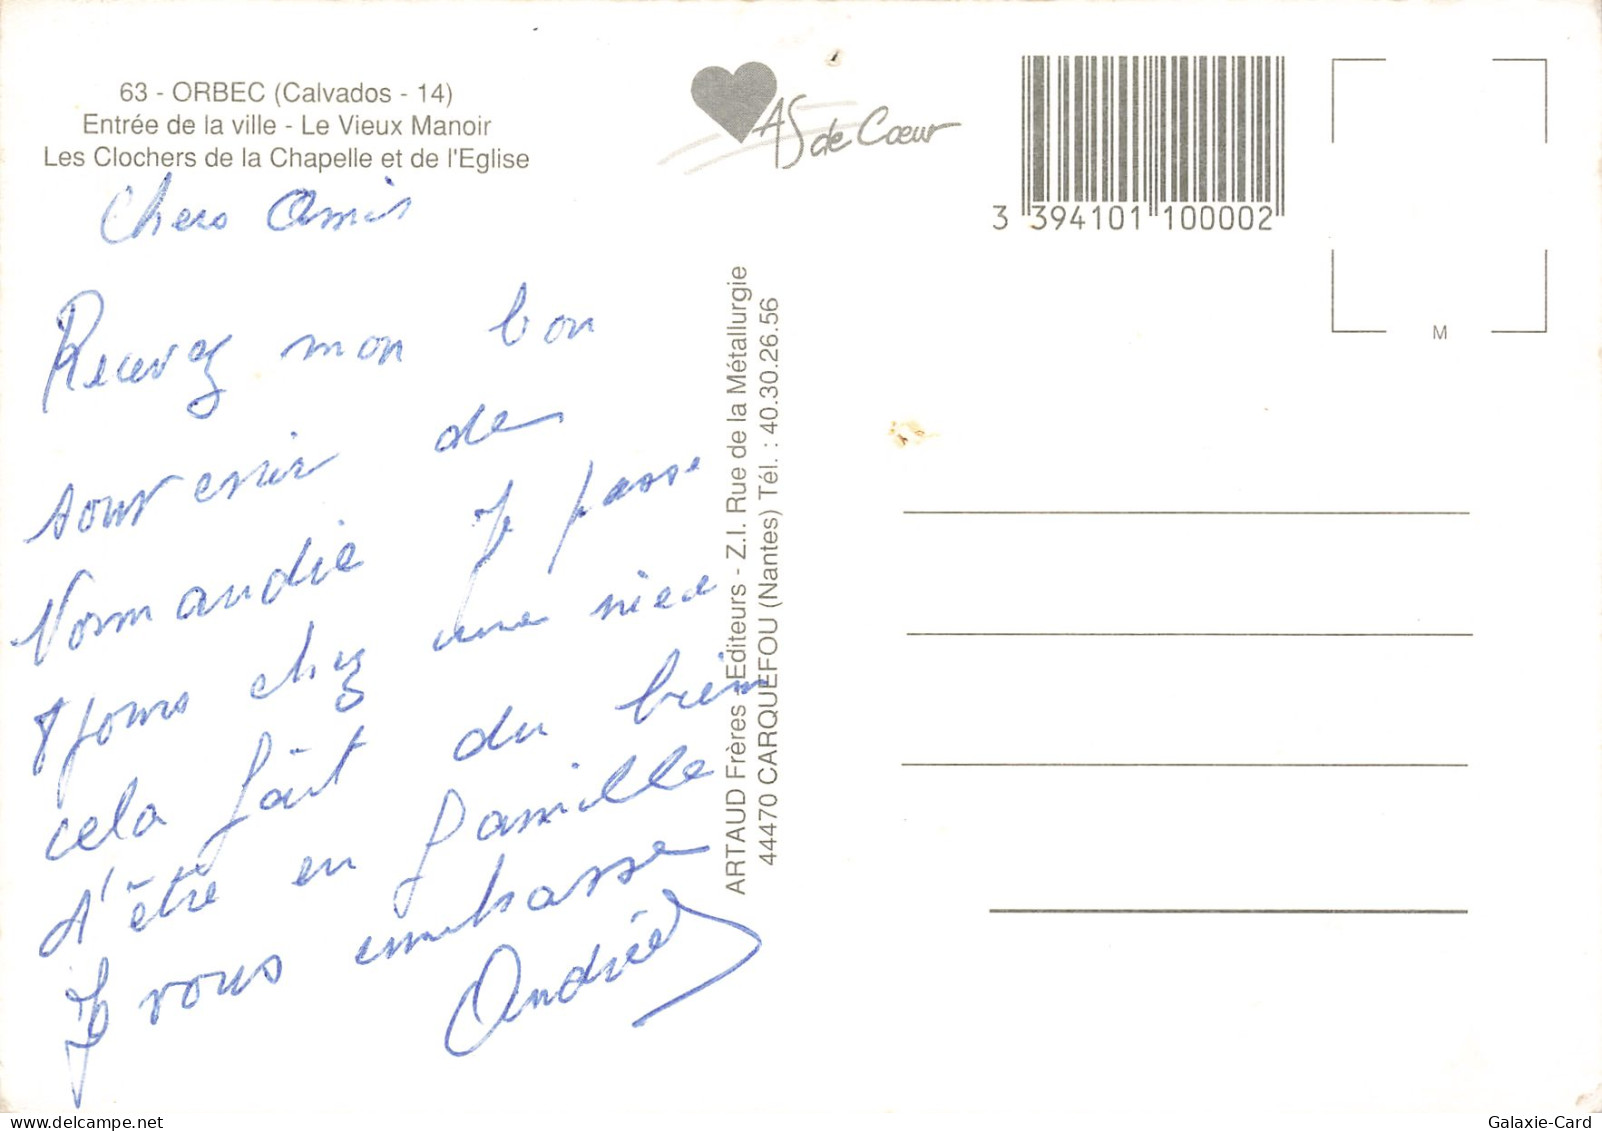 63 - ORBEC (Calvados - 14)
Entrée de la ville - Le Vieux Manoir
Les Clochers de la Chapelle et de l'Eglise
Chers Amis
Recevez mon bon
souvenir de
Normandie Je passe
8 jours chez une niece
cela fait du bien
d'être en famille
Je vous embrasse
Andrée
AS de Cœur
3 394101 100002
M
ARTAUD Frères - Editeurs - Z.I. Rue de la Métallurgie
44470 CARQUEFOU (Nantes) Tél. : 40.30.26.56
Galaxie-Card